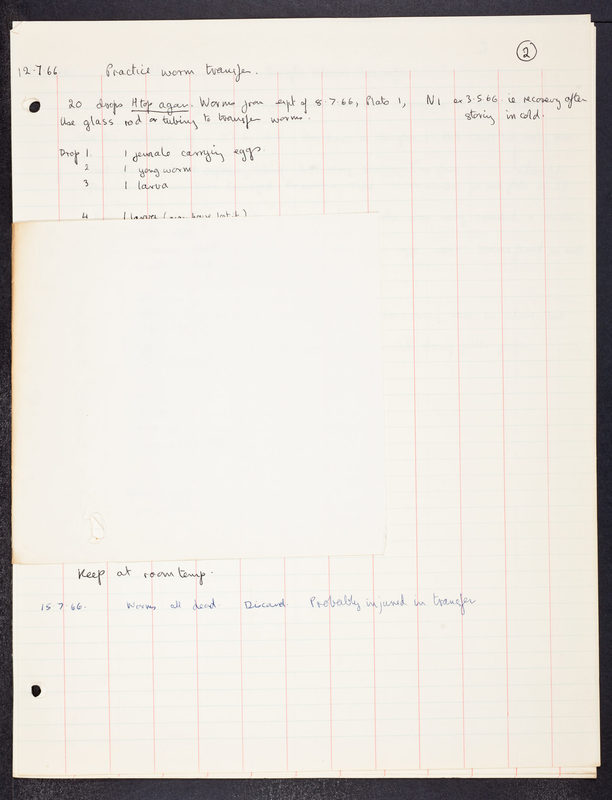 2
12.7.66 Practice worm transfer.
20 drops H top agar. Worms from expt of 8.7.66, Plate 1, N1 ex 3.5.66 ie recovery after
Use glass rod or tubing to transfer worms. storing in cold.
Drop 1. 1 female carrying eggs.
2 1 young worm
3 1 larva
4 1 larva
Keep at room temp.
15.7.66. Worms all dead. Discard. Probably injured in transfer